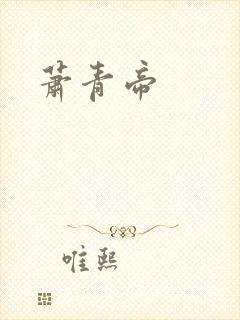 萧青帝
唯熙